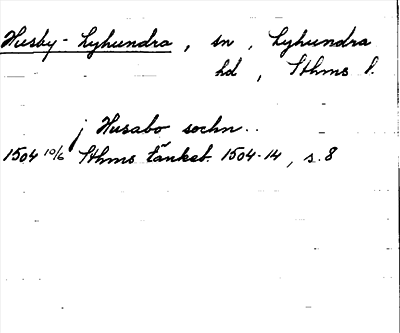 Husby-Lyhundra, sn, Lyhundra
hd, Sthms l.
j Husabo sochn..
1504 10/6 Sthms tänkeb. 1504-14, s. 8